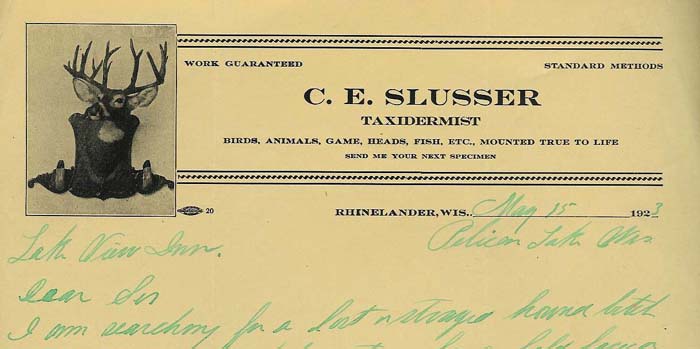 WORK GUARANTEED STANDARD METHODS
C. E. SLUSSER
TAXIDERMIST
BIRDS, ANIMALS, GAME, HEADS, FISH, ETC., MOUNTED TRUE TO LIFE
SEND ME YOUR NEXT SPECIMEN
20 RHINELANDER, WIS.. May 15 1923
Lak View Inn. Pelican Lake Wis
Dear Sir
I am searching for a lost or strayed hound